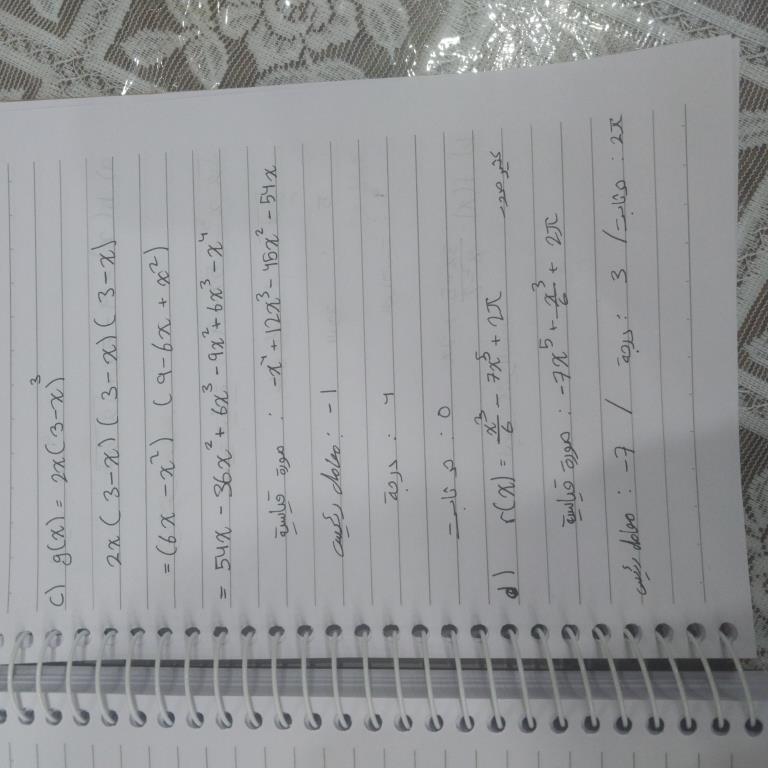 c) g(x) = 2x(3-x)³
2x(3-x)(3-x)(3-x)
=(6x-x²)(9-6x+x²)
= 54x - 36x² + 6x³ - 9x² + 6x³ - x⁴
صورة قياسية : -x⁴+12x³-45x²-54x
معامل رئيسي : -1
درجة : 4
ثابت : 0
d) r(x) = x³/6 - 7x⁵ + 2π كثير حدود
صورة قياسية : -7x⁵ + x³/6 + 2π
معامل رئيسي : -7 / درجة : 3 / ثابت : 2π